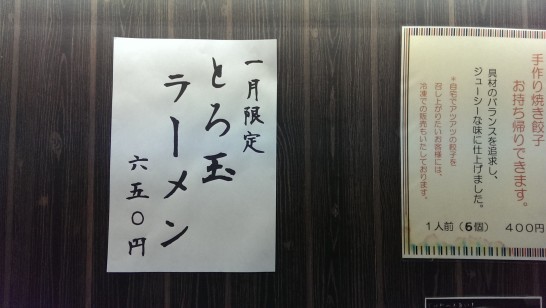 一月限定
とろ玉
ラーメン
六五〇円
手作り焼き餃子
お持ち帰りできます。
具材のバランスを追求し、
ジューシーな味に仕上げました。
*自宅でアツアツの餃子を
召し上がりたいお客様には、
冷凍での販売もいたしております。
1人前(6個) 400円